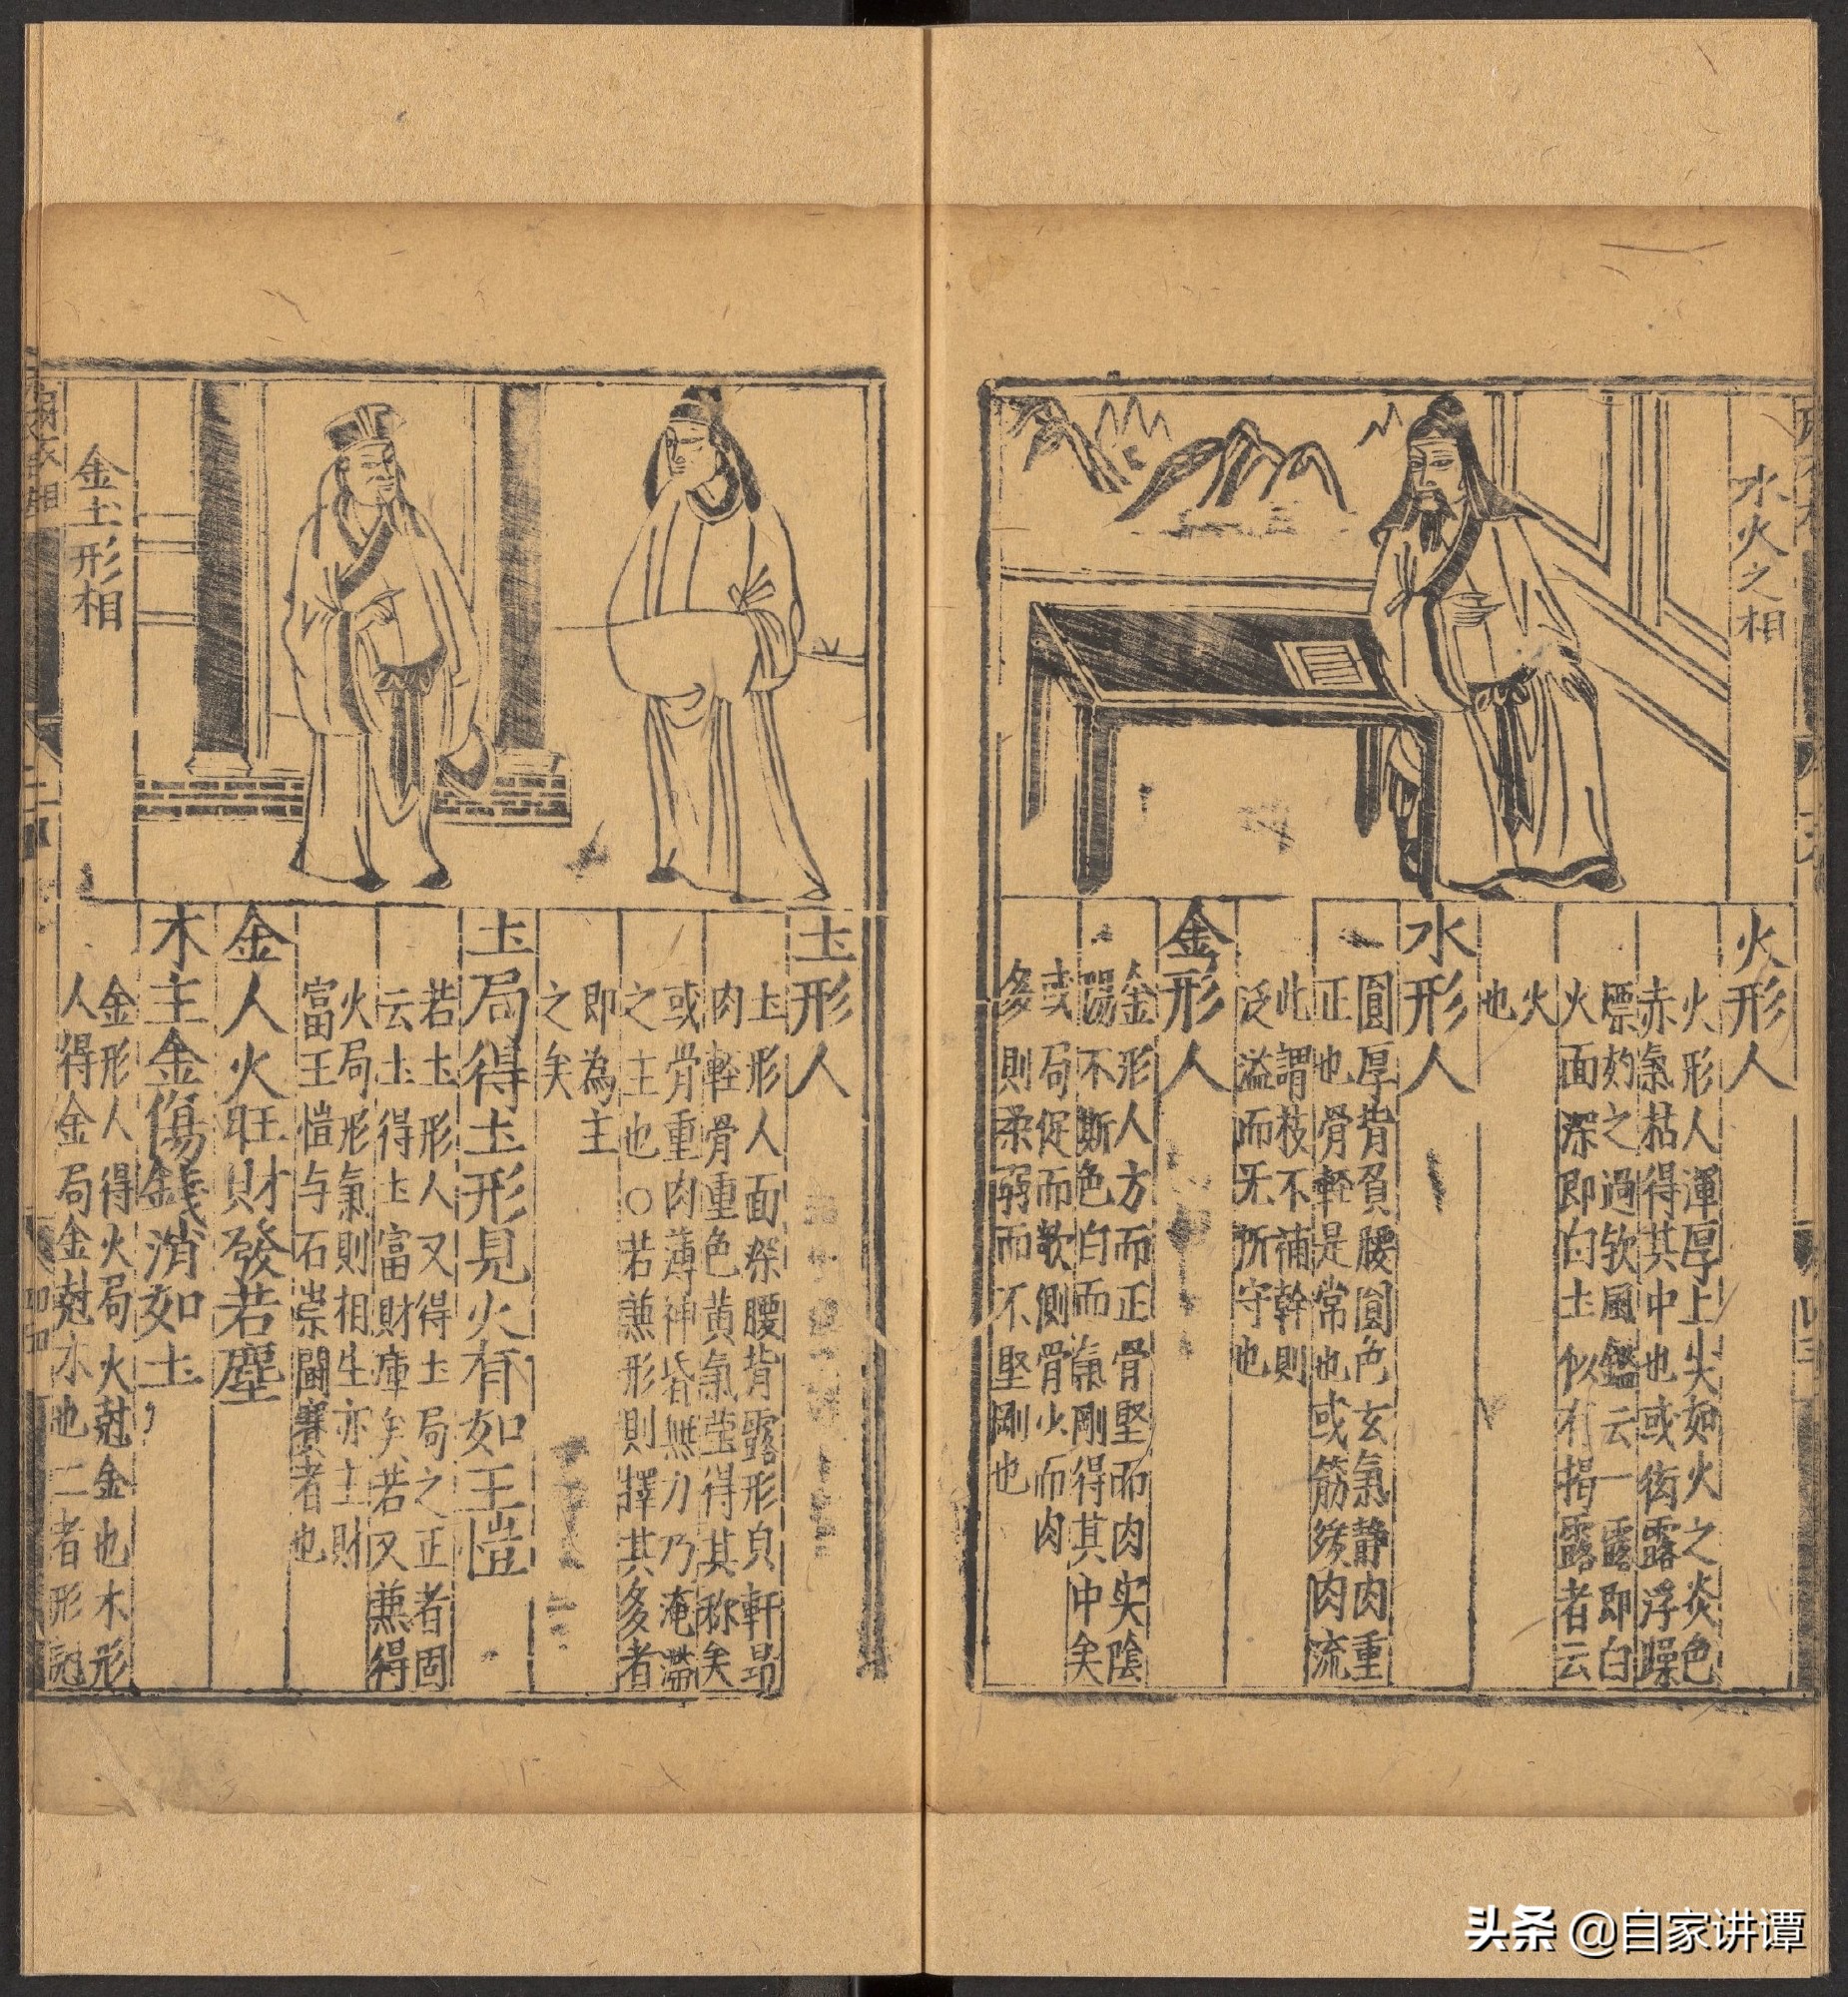 水火之相
火形人
火形人渾厚上尖如火之炎色
赤氣枯得其中也或俗露浮躁
㷼灼之過欤風鑑云一露即白
火面深即白土似有揭露者云
火
也
水形人
圓厚背負腰圓色玄氣靜肉重
正也骨軽是常也或筋緩肉流
此謂枝不補幹則
泛溢而无所守也
金形人
金形人方而正骨堅而肉实陰
陽不斯色白而氣剛得其中矣
或局促而欹側骨少而肉
多則柔弱而不堅剛也
金土形相
土形人
土形人面深腰背露形皃軒昂
肉軽骨重色黄氣瑩得其称矣
或骨重肉薄神昏無力乃淹滯
之主也○若兼形則擇其多者
即為主
之矣
土局得土形見火有如王愷
若土形人又得土局之正者固
云土得土富財庫矣若又兼得
火局形氣則相生亦主財
富王愷与石崇鬪寳者也
金人火旺財發若塵
木主金傷錢消如土
金形人得火局火尅金也木形
人得金局金尅木也二者形尅
頭条 @自家讲谭